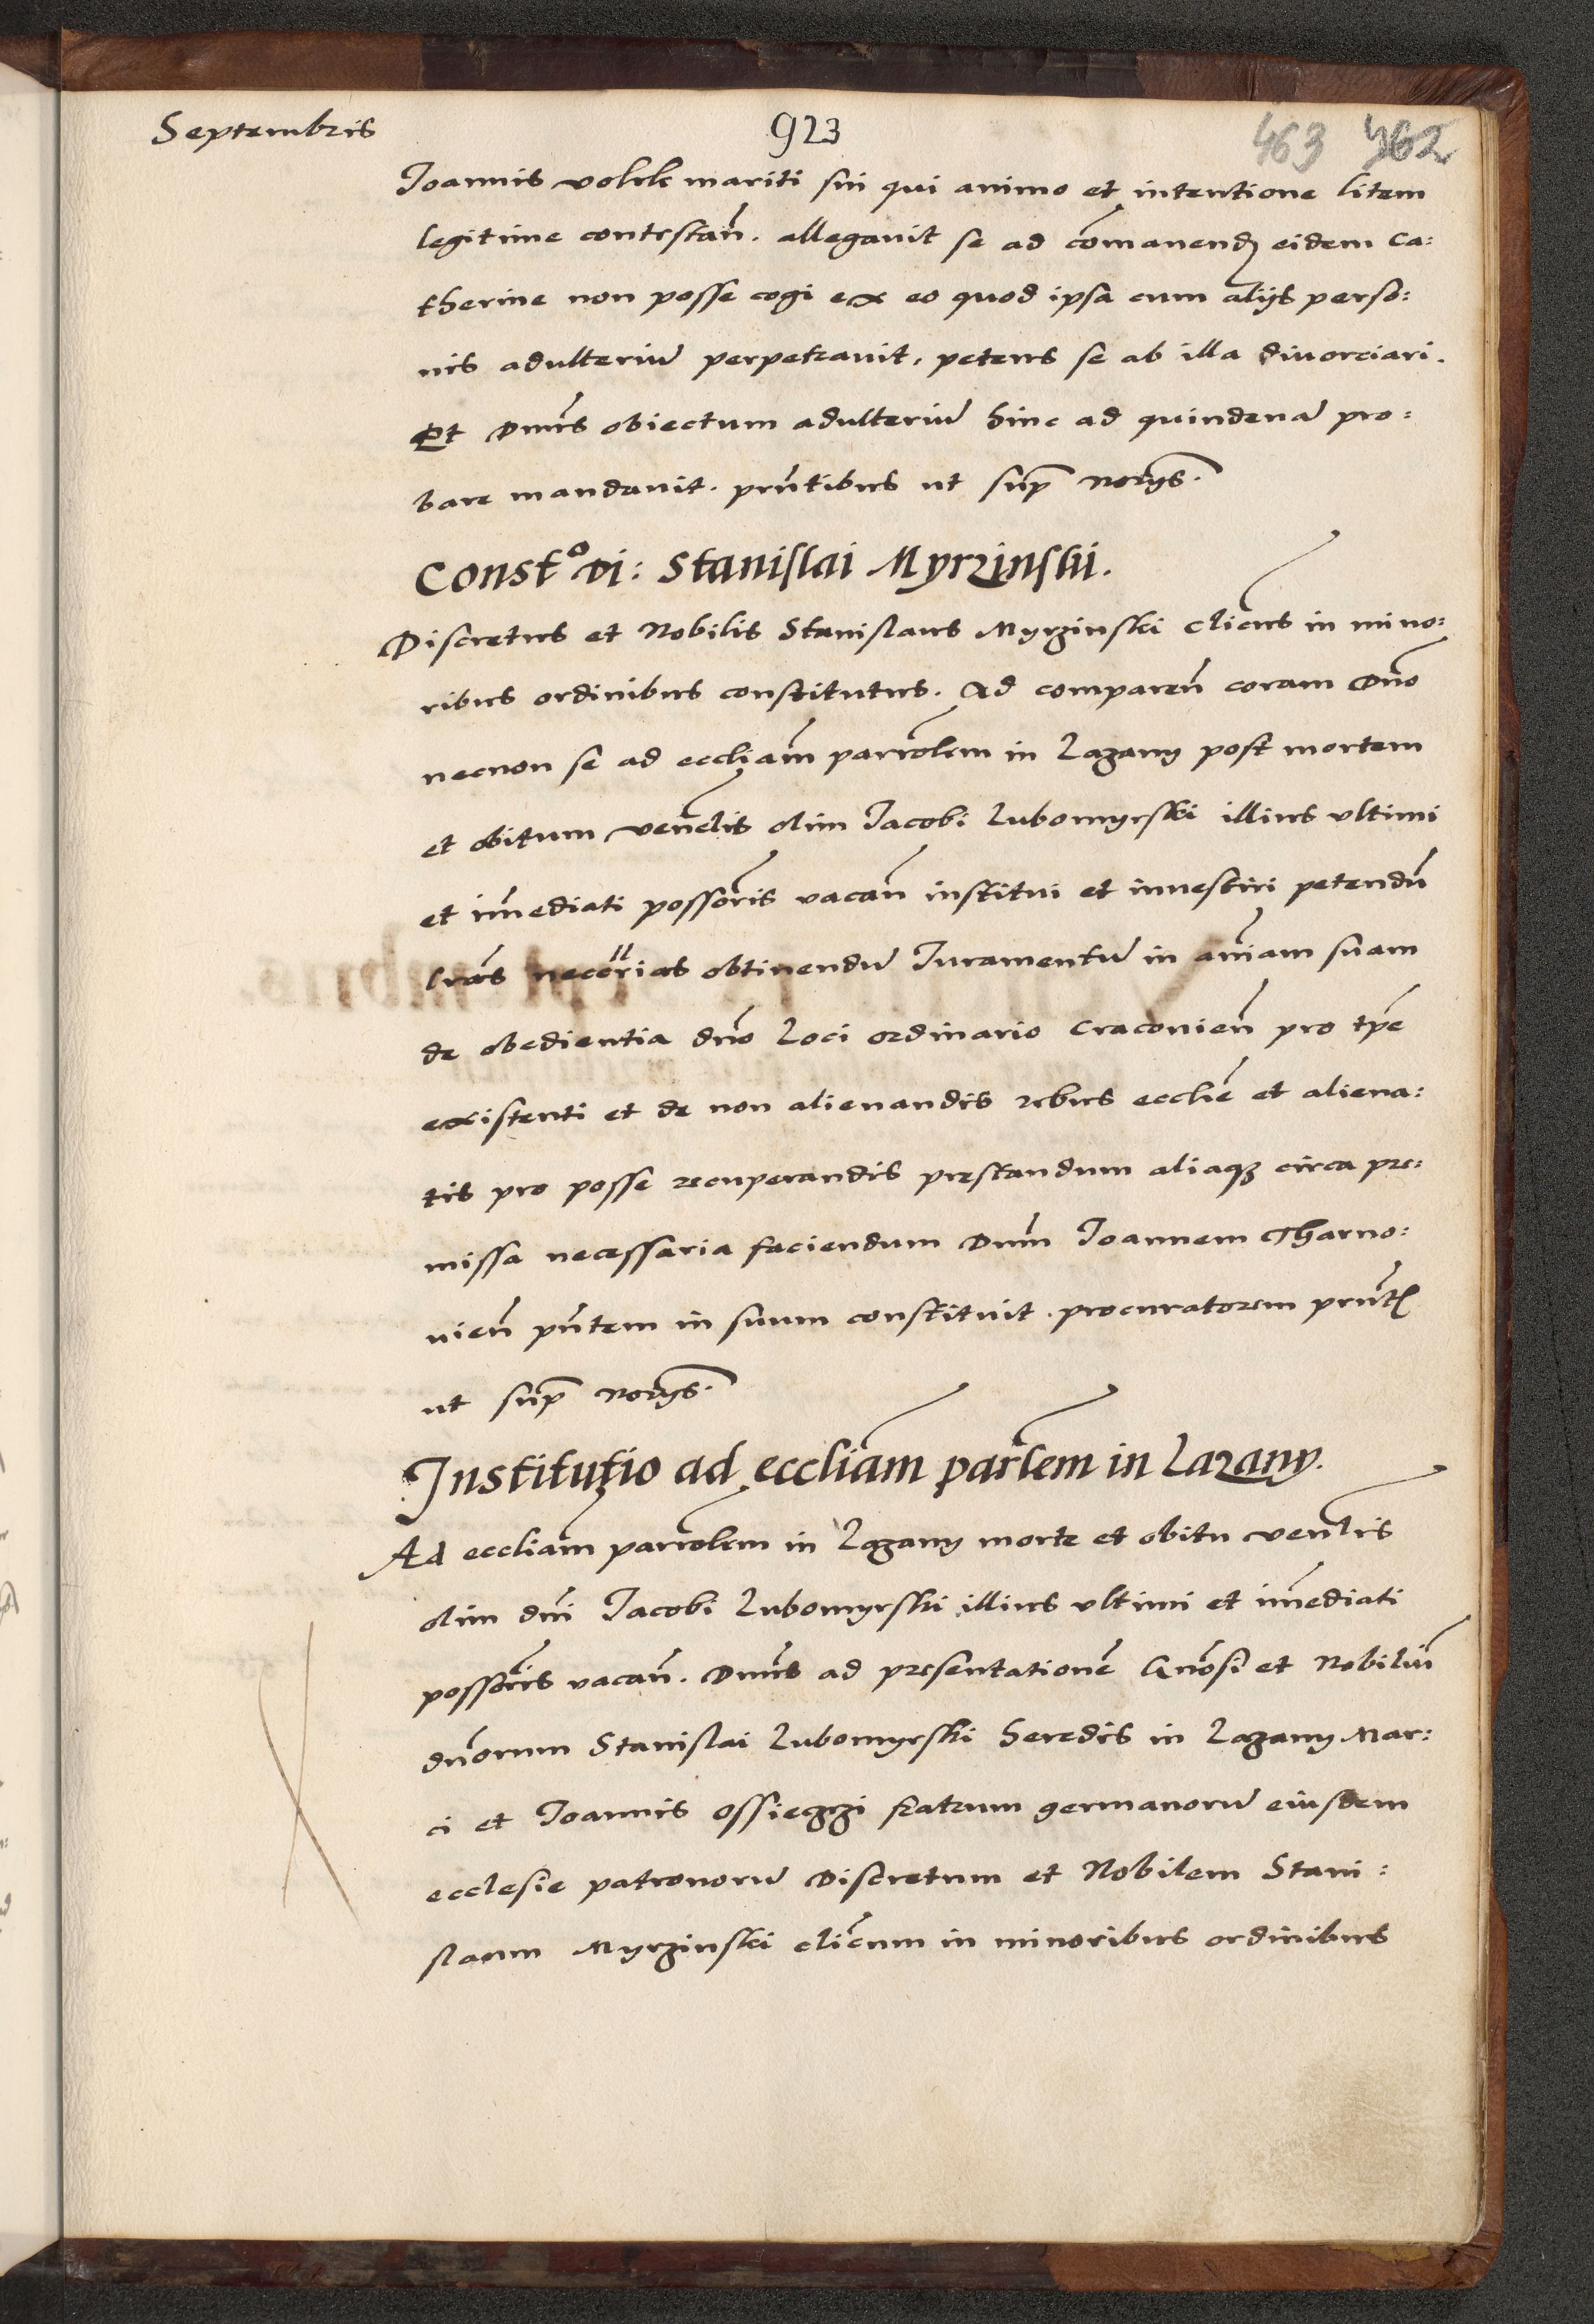 Septembris 923 463 462
Joannis volek mariti sui qui animo et intentione litem
legitime contestan̄. allegauit se ad com̄anend eidem Ca:
therine non posse cogi ex eo quod ipsa cum alijs perso:
nis adulteriū perpetrauit, petens se ab illa diuorciari.
Et Dn̄s obiectum adulteriū hinc ad quindenā pro:
bare mandauit. prn̄tibus ut sup̄ notr̄ijs.
Constᵒ Di: Stanislai Myrzinskii.
Discretus et Nobilis Stanislaus Myrzinski clicus in mino:
ribus ordinibus constitutus. Ad comparen̄ coram Dn̄o
necnon se ad eccliam̄ parrolem in Lazany post mortem
et obitum ven̄elis olim Jacobi Lubomyrski illius vltimi
et im̄ediati possor̄is vacan̄ institui et inuestiri petendū
lrās necc̄rias obtinendū Juramentū in an̄iam suam
de obedientia dn̄o Loci ordinario Craconien̄ pro tp̄e
existenti et de non alienandis rebus ecclie̅ et aliena:
tis pro posse recuperandis prestandum aliaqꝫ circa pre:
missa necessaria faciendum Dn̄m Joannem Tharno:
uien̄ pn̄tem in suum constituit procuratorem prn̄t
ut sup̄ notr̄ijs.
Institutio ad eccliam̄ parlem̄ in Lazany.
Ad eccliam̄ parrolem in Lazany morte et obitu venlis
olim dn̄i Jacobi Lubomyrski illius vltimi et im̄ediati
possor̄is vacan̄. Dn̄s ad presentatione̅ Gn̄osi et Nobiliū
dn̄orum Stanislai Lubomyrski heredis in Lazany Mar:
ci et Joannis Ossieczzi fratrum germanorū eiusdem
ecclesie patronorū Discretum et Nobilem Stani:
slaum Myrzinski clicum in minoribus ordinibus